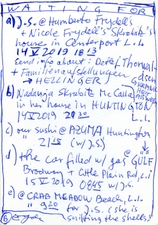 WAITING FOR
a) J.S. @ Humberto Frydell's
+ Nicole Frydell's Skrabek's
house in Centerport L.I.
14 V 2019 18
send info about:
+ Familienaufstellungen
→ HELLINGER)
b) Nadenja Skrabits McCalla
in her house in HUNTINGTON
14 V 2019 20 L.I.
c) our sushi @ AZUMA Huntington
21 (w/J.S)
d) the car filled w/ gas @ GULF
Broadway + Little Plain Rd L.I.
15 V 2019 0845 w/J.S.
e) @ CRAB MEADOW Beach, L.I.
9 for J.S. (she is
sniffing the shells)